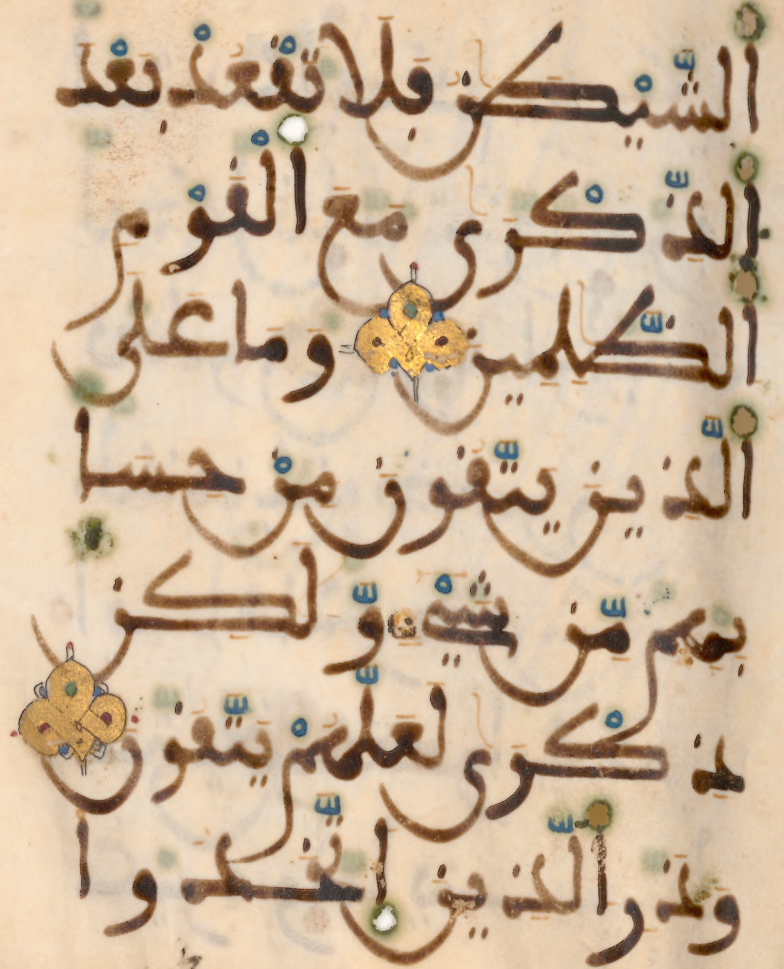 الشيطن فلا تقعد بعد
الذكرى مع القوم
الظلمين وما على
الذين يتقون من حسا
بهم من شيء ولكن
ذكرى لعلهم يتقون
وذر الذين اتخذوا